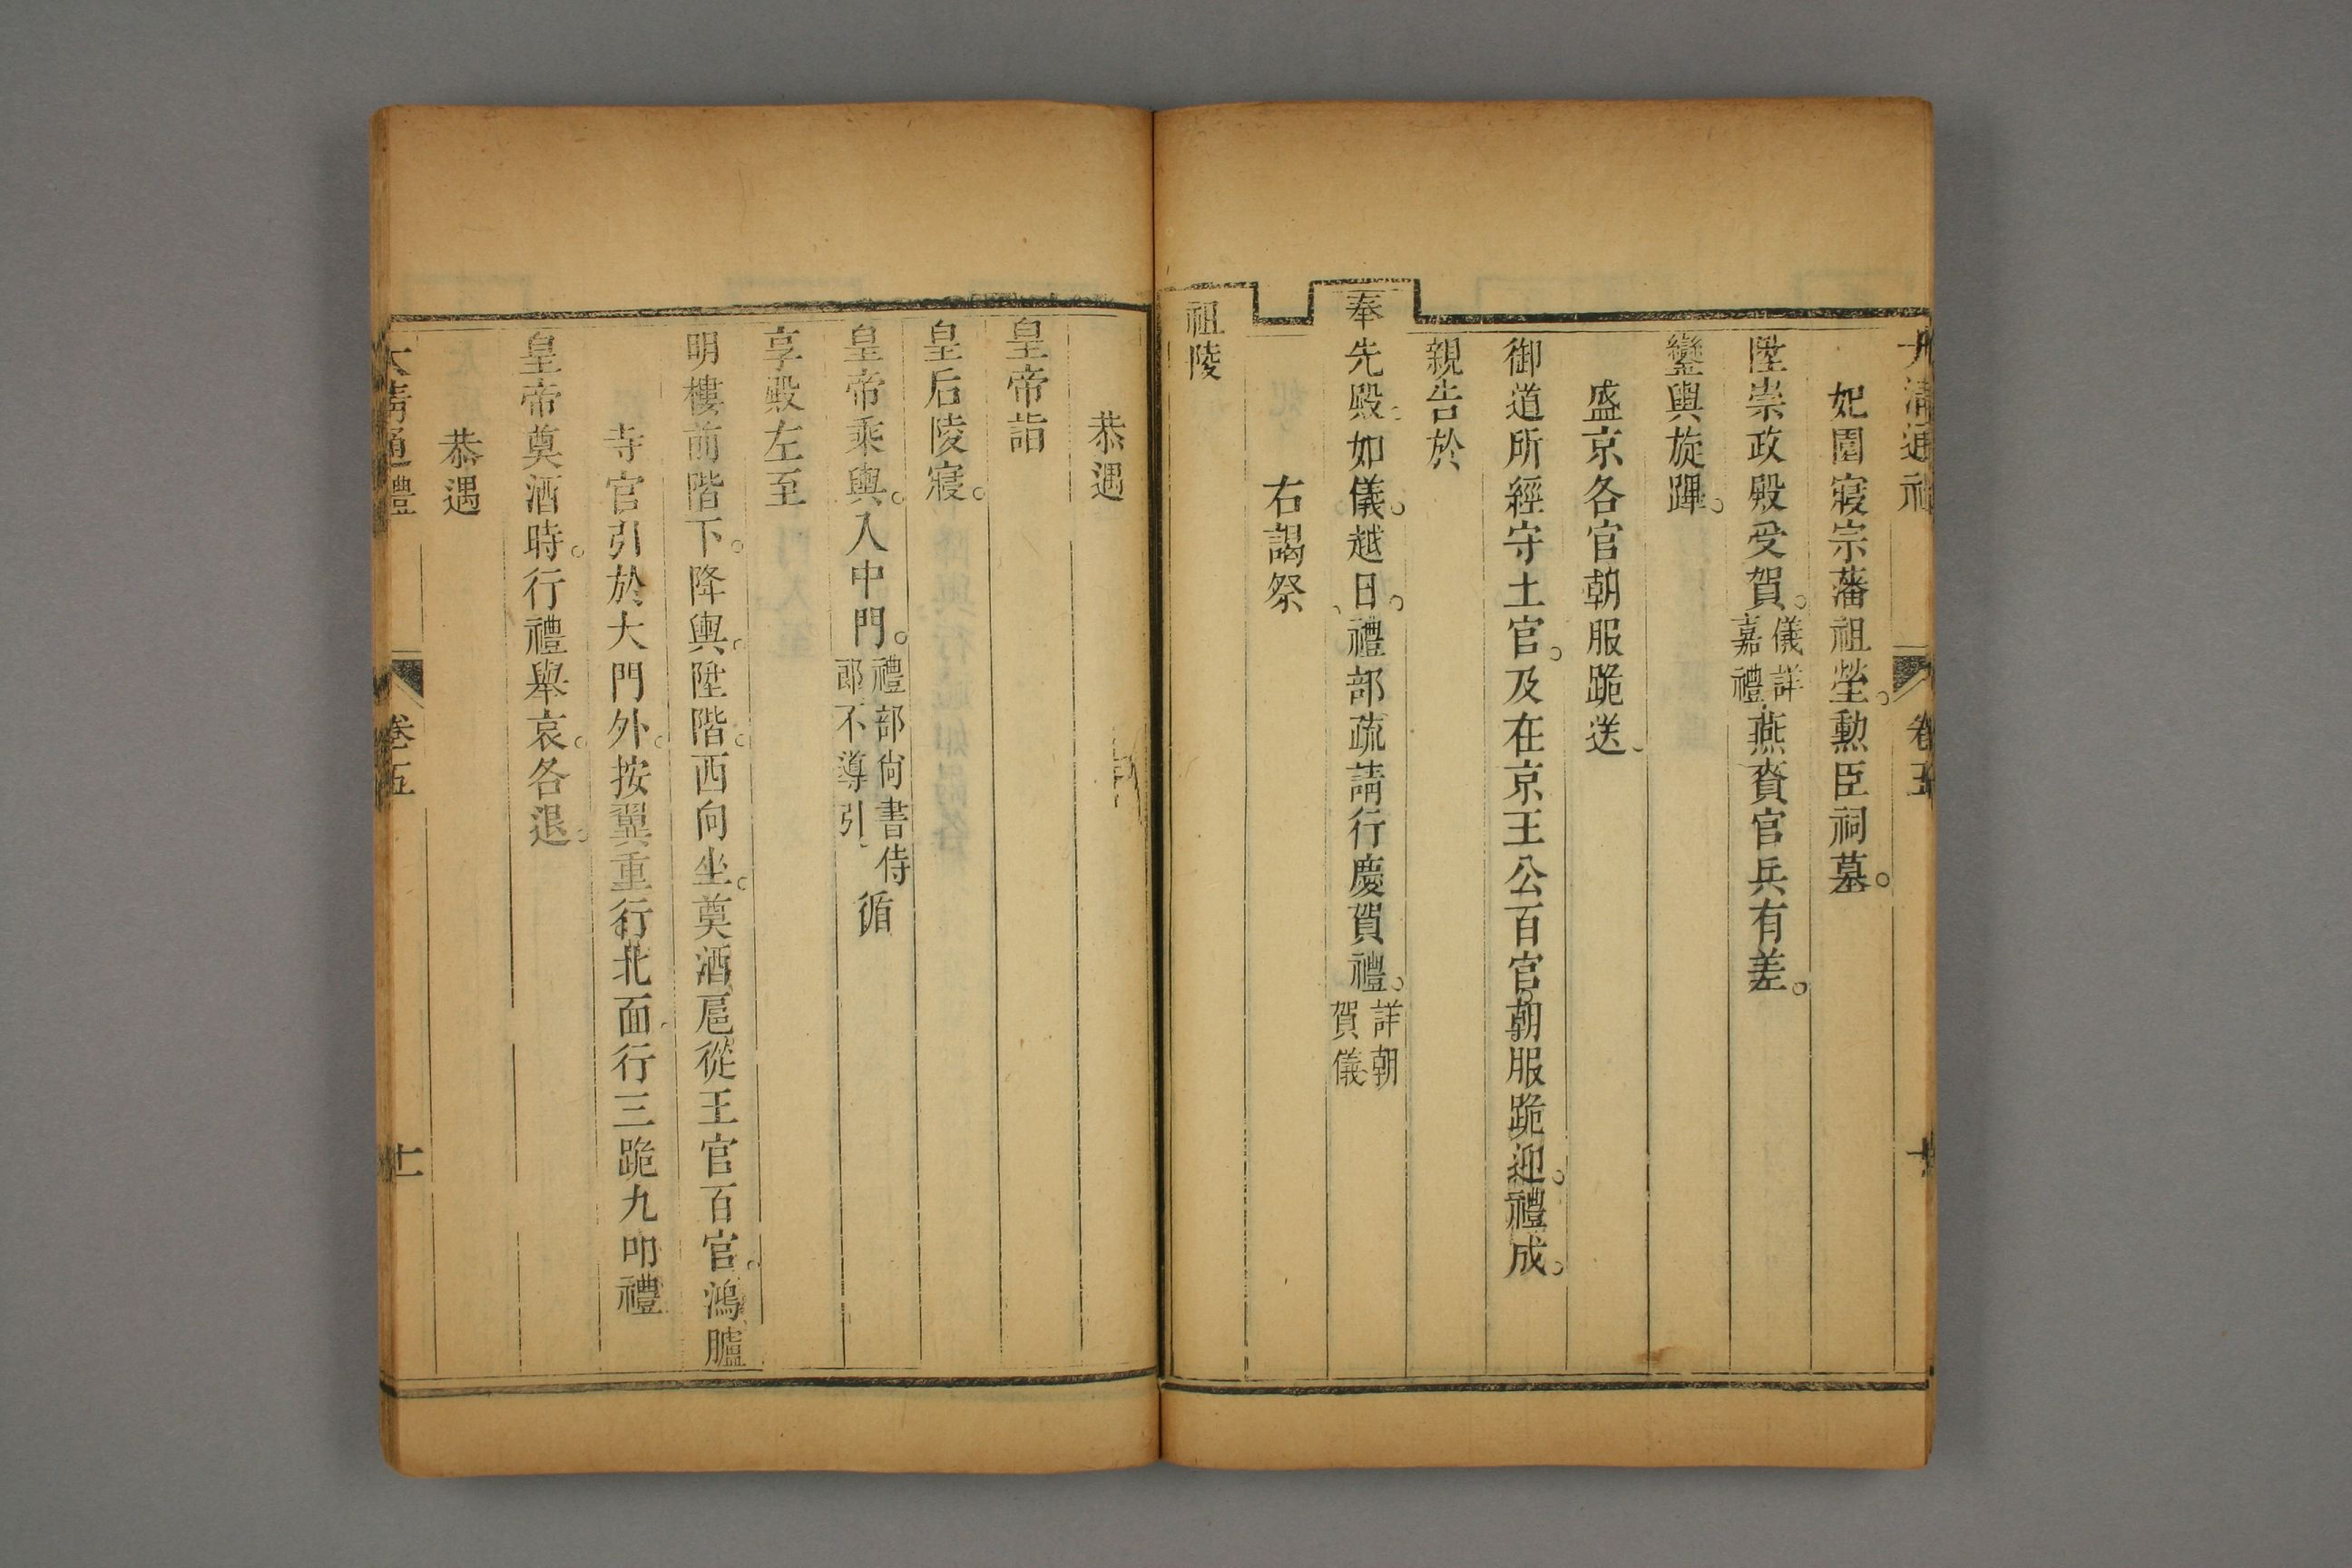 大清通禮 卷五 十
妃園寢宗藩祖塋。勲臣祠墓。
陞崇政殿受賀。儀詳嘉禮燕賚官兵有差。
鑾輿旋蹕。
盛京各官朝服跪送
御道所經守土官。及在京王公百官。朝服跪迎。禮成。
親告於
奉先殿。如儀。越日。禮部疏請行慶賀禮。詳朝賀儀
右謁祭
祖陵
恭遇
皇帝詣
皇后陵寢。
皇帝乘輿。入中門。禮部尚書侍郎不導引循
享殿左至
明樓前階下。降輿。陞階。西向坐。奠酒扈從王官百官。鴻臚
寺官引於大門外。按翼重行北面。行三跪九叩禮
皇帝奠酒時。行禮舉哀。各退。
恭遇
大清通禮 卷五 十一